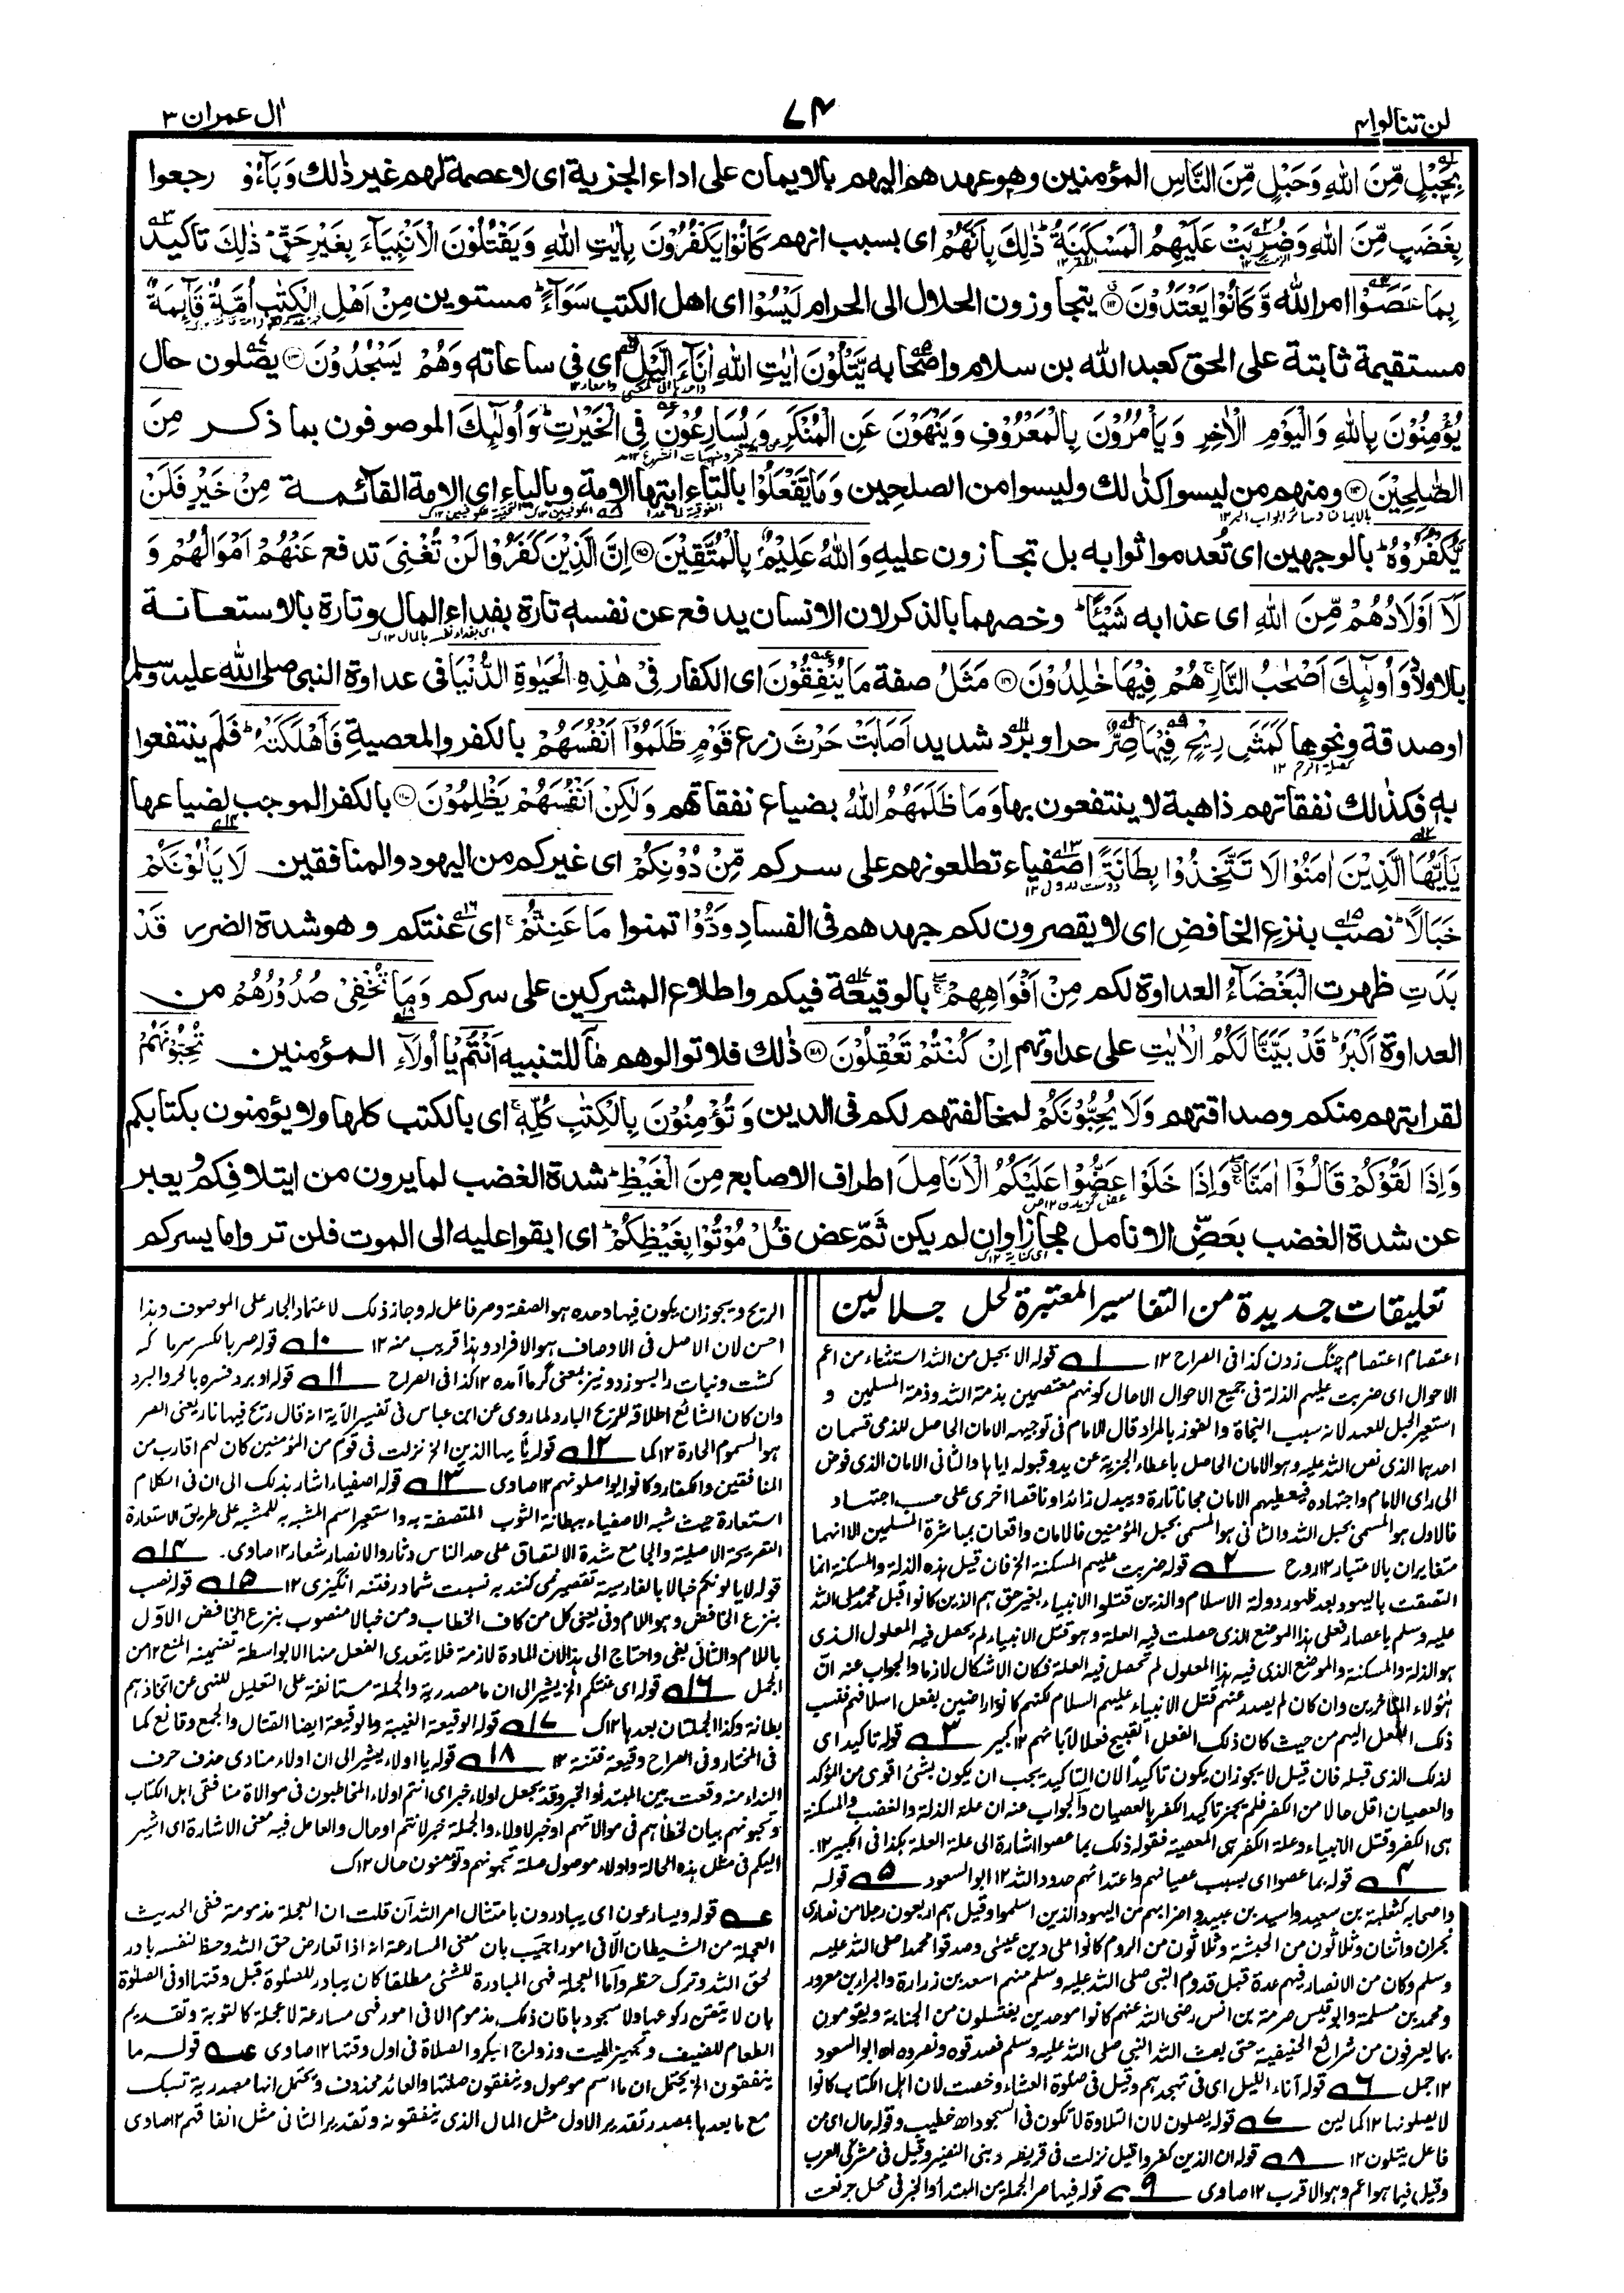 لن تنالوا ٤
٧٤
اٰل عمران ٣
بِحَبْلٍ مِّنَ اللّٰهِ وَحَبْلٍ مِّنَ النَّاسِ المؤمنين وهو عهدهم اليهم بالايمان على اداء الجزية اى لا عصمة لهم غير ذٰلك وَبَآءُوْ رجعوا
بِغَضَبٍ مِّنَ اللّٰهِ وَضُرِبَتْ عَلَيْهِمُ الْمَسْكَنَةُ ؕ ذٰلِكَ بِاَنَّهُمْ اى بسبب انهم كَانُوْا يَكْفُرُوْنَ بِاٰيٰتِ اللّٰهِ وَيَقْتُلُوْنَ الْاَنْۢبِيَآءَ بِغَيْرِ حَقٍّ ؕ ذٰلِكَ تاكيد
بِمَا عَصَوْا امر الله وَّكَانُوْا يَعْتَدُوْنَ ﴿١١٢﴾ يتجاوزون الحلال الى الحرام لَيْسُوْا اى اهل الكتب سَوَآءً ؕ مستوين مِنْ اَهْلِ الْكِتٰبِ اُمَّةٌ قَآئِمَةٌ
مستقيمة ثابتة على الحق كعبد الله بن سلام واصحابه يَّتْلُوْنَ اٰيٰتِ اللّٰهِ اٰنَآءَ الَّيْلِ اى فى ساعاته وَهُمْ يَسْجُدُوْنَ ﴿١١٣﴾ يصلون حال
يُؤْمِنُوْنَ بِاللّٰهِ وَالْيَوْمِ الْاٰخِرِ وَيَاْمُرُوْنَ بِالْمَعْرُوْفِ وَيَنْهَوْنَ عَنِ الْمُنْكَرِ وَيُسَارِعُوْنَ فِى الْخَيْرٰتِ ؕ وَاُولٰٓئِكَ الموصوفون بما ذكر مِنَ
الصّٰلِحِيْنَ ﴿١١٤﴾ ومنهم من ليسوا كذلك وليسوا من الصلحين وَمَا تَفْعَلُوْا بالتاء ايتها الامة وبالياء اى الامة القائمة مِنْ خَيْرٍ فَلَنْ
يُّكْفَرُوْهُ ؕ بالوجهين اى تُعدموا ثوابه بل تجازون عليه وَاللّٰهُ عَلِيْمٌۢ بِالْمُتَّقِيْنَ ﴿١١٥﴾ اِنَّ الَّذِيْنَ كَفَرُوْا لَنْ تُغْنِىَ تدفع عَنْهُمْ اَمْوَالُهُمْ وَ
لَآ اَوْلَادُهُمْ مِّنَ اللّٰهِ اى عذابه شَيْئًا ؕ وخصهما بالذكر لان الانسان يدفع عن نفسه تارة بفداء المال وتارة بالاستعانة
بالاولاد وَاُولٰٓئِكَ اَصْحٰبُ النَّارِ ۚ هُمْ فِيْهَا خٰلِدُوْنَ ﴿١١٦﴾ مَثَلُ صفة مَا يُنْفِقُوْنَ اى الكفار فِىْ هٰذِهِ الْحَيٰوةِ الدُّنْيَا فى عداوة النبى صلى الله عليه وسلم
او صدقة ونحوها كَمَثَلِ رِيْحٍ فِيْهَا صِرٌّ حر او برد شديد اَصَابَتْ حَرْثَ زرع قَوْمٍ ظَلَمُوْٓا اَنْفُسَهُمْ بالكفر والمعصية فَاَهْلَكَتْهُ ؕ فلم ينتفعوا
به فكذلك نفقاتهم ذاهبة لا ينتفعون بها وَمَا ظَلَمَهُمُ اللّٰهُ بضياع نفقاتهم وَلٰكِنْ اَنْفُسَهُمْ يَظْلِمُوْنَ ﴿١١٧﴾ بالكفر الموجب لضياعها
يٰٓاَيُّهَا الَّذِيْنَ اٰمَنُوْا لَا تَتَّخِذُوْا بِطَانَةً اصفياء تطلعونهم على سركم مِّنْ دُوْنِكُمْ اى غيركم من اليهود والمنافقين لَا يَاْلُوْنَكُمْ
خَبَالًا ؕ نصب بنزع الخافض اى لا يقصرون لكم جهدهم فى الفساد وَدُّوْا تمنوا مَا عَنِتُّمْ ۚ اى عنتكم وهو شدة الضرر قَدْ
بَدَتِ ظهرت الْبَغْضَآءُ العداوة لكم مِنْ اَفْوَاهِهِمْ ۚ بالوقيعة فيكم واطلاع المشركين على سركم وَمَا تُخْفِىْ صُدُوْرُهُمْ من
العداوة اَكْبَرُ ؕ قَدْ بَيَّنَّا لَكُمُ الْاٰيٰتِ على عداوتهم اِنْ كُنْتُمْ تَعْقِلُوْنَ ﴿١١٨﴾ ذٰلك فلا توالوهم هٰٓا للتنبيه اَنْتُمْ يا اُولَآءِ المؤمنين تُحِبُّوْنَهُمْ
لقرابتهم منكم وصداقتهم وَلَا يُحِبُّوْنَكُمْ لمخالفتهم لكم فى الدين وَتُؤْمِنُوْنَ بِالْكِتٰبِ كُلِّهٖ ۚ اى بالكتب كلها ولا يؤمنون بكتابكم
وَاِذَا لَقُوْكُمْ قَالُوْٓا اٰمَنَّا ۖ وَاِذَا خَلَوْا عَضُّوْا عَلَيْكُمُ الْاَنَامِلَ اطراف الاصابع مِنَ الْغَيْظِ ؕ شدة الغضب لما يرون من ايتلافكم ويعبر
عن شدة الغضب بعَضِّ الانامل مجازا وان لم يكن ثَمَّ عض قُلْ مُوْتُوْا بِغَيْظِكُمْ ؕ اى ابقوا عليه الى الموت فلن تروا ما يسركم
تعليقات جديدة من التفاسير المعتبرة لحل جلالين
اعتصام اعتصام چنگ زدن كذا فى الصراح ١٢ ١ قوله الا بحبل من الله استثناء من اعم
الاحوال اى ضربت عليهم الذلة فى جميع الاحوال الا حال كونهم معتصمين بذمة الله وذمة المسلمين و
استعير الحبل للعهد لانه سبب النجاة والفوز بالمراد قال الامام فى توجيهه الامان الحاصل للذمى قسمان
احدهما الذى نص الله عليه وهو الامان الحاصل باعطاء الجزية عن يد وقبوله اياها والثانى الامان الذى فوض
الى راى الامام واجتهاده فيعطيهم الامان مجانا تارة وببدل زائد او ناقص اخرى على حسب اجتهاد
فالاول هو المسمى بحبل الله والثانى هو المسمى بحبل المؤمنين فالامان واقعان بمباشرة المسلمين الا انهما
متغايران بالاعتبار ١٢ روح ٢ قوله ضربت عليهم المسكنة الخ فان قيل هذه الذلة والمسكنة انما
التصقت باليهود بعد ظهور دولة الاسلام والذين قتلوا الانبياء بغير حق هم الذين كانوا قبل محمد صلى الله
عليه وسلم باعصار فعلى هذا الموضع الذى حصلت فيه العلة وهو قتل الانبياء لم يحصل فيه المعلول الذى
هو الذلة والمسكنة والموضع الذى فيه هذا المعلول لم تحصل فيه العلة فكان الاشكال لازما والجواب عنه ان
هؤلاء المتاخرين وان كان لم يصدر عنهم قتل الانبياء عليهم السلام لكنهم كانوا راضين بفعل اسلافهم فنسب
ذلك الفعل اليهم من حيث كان ذلك الفعل القبيح فعلا لآبائهم ١٢ كبير ٣ قوله تاكيد اى
لذلك الذى قبله فان قيل لا يجوز ان يكون تاكيدا لان التاكيد يجب ان يكون بشئ اقوى من المؤكد
والعصيان اقل حالا من الكفر فلم يجز تاكيد الكفر بالعصيان والجواب عنه ان علة الذلة والغضب والمسكنة
هى الكفر وقتل الانبياء وعلة الكفر هى المعصية فقوله ذلك بما عصوا اشارة الى علة العلة هكذا فى الكبير ١٢
٤ قوله بما عصوا اى بسبب عصيانهم واعتدائهم حدود الله ١٢ ابو السعود ٥ قوله
واصحابه كثعلبة بن سعيد واسيد بن عبيد واضرابهم من اليهود الذين اسلموا وقيل هم اربعون رجلا من نصارى
نجران واثنان وثلاثون من الحبشة وثلاثون من الروم كانوا على دين عيسى وصدقوا محمدا صلى الله عليه
وسلم وكان من الانصار فيهم عدة قبل قدوم النبى صلى الله عليه وسلم منهم اسعد بن زرارة والبراء بن معرور
ومحمد بن مسلمة وابو قيس صرمة بن انس رضى الله عنهم كانوا موحدين يغتسلون من الجنابة ويقومون
بما يعرفون من شرائع الحنيفية حتى بعث الله النبى صلى الله عليه وسلم فصدقوه ونصروه اھ ابو السعود
١٢ جمل ٦ قوله آناء الليل اى فى تهجدهم وقيل فى صلوة العشاء وخصت لان اهل الكتاب كانوا
لا يصلونها ١٢ كمالين ٧ قوله يصلون لان التلاوة لا تكون فى السجود اھ خطيب وقوله حال اى من
فاعل يتلون ١٢ ٨ قوله ان الذين كفروا قيل نزلت فى قريظة وبنى النضير وقيل فى مشركى العرب
وقيل فيما هو اعم وهو الاقرب ١٢ صاوى ٩ قوله فيها صر الجملة من المبتدأ والخبر فى محل جر نعت
الريح ويجوز ان يكون فيها وحده هو الصفة وصر فاعل له وجاز ذلك لاعتماد الجار على الموصوف وهذا
احسن لان الاصل فى الاوصاف هو الافراد وهذا قريب منه ١٢ ١٠ قوله صر بالكسر سرما كه
كشت ونبات را بسوزد ونيز بمعنى گرما آمده ١٢ كذا فى الصراح ١١ قوله او برد فسره بالحر والبرد
وان كان الشائع اطلاقه للريح البارد لما روى عن ابن عباس فى تفسير الآية انه قال ريح فيها نار يعنى الصر
هو السموم الحارة ١٢ كما ١٢ قوله يا ايها الذين الخ نزلت فى قوم من المؤمنين كان لهم اقارب من
المنافقين والكفار وكانوا يواصلونهم ١٢ صاوى ١٣ قوله اصفياء اشار بذلك الى ان فى الكلام
استعارة حيث شبه الاصفياء ببطانة الثوب المتصفة به واستعير اسم المشبه به للمشبه على طريق الاستعارة
التصريحة الاصلية والجامع شدة الالتصاق على حد الناس دثار والانصار شعار ١٢ صاوى ١٤
قوله لا يالونكم خبالا بالفارسية تقصير نمى كنند به نسبت شما در فتنه انگيزى ١٢ ١٥ قوله نصب
بنزع الخافض وهو اللام وفى يعنى كل من كاف الخطاب ومن خبالا منصوب بنزع الخافض الاول
باللام والثانى بفى واحتاج الى هذا لان المادة لازمة فلا يتعدى الفعل منها الا بواسطة تضمينه المنع ١٢ من
الجمل ١٦ قوله اى عنتكم الخ يشير الى ان ما مصدرية والجملة مستانفة على التعليل للنهى عن اتخاذهم
بطانة وكذا الجملتان بعدها ١٢ ك ١٧ قوله الوقيعة الغيبة والوقيعة ايضا القتال والجمع وقائع كما
فى المختار وفى الصراح وقيعة فتنة ١٢ ١٨ قوله يا اولاء يشير الى ان اولاء منادى حذف حرف
النداء منه وقعت بين المبتدأ والخبر وقد يجعل اولاء خبرا اى انتم اولاء المخاطبون فى موالاة منافقى اهل الكتاب
وتحبونهم بيان لخطأهم فى موالاتهم او خبر لاولاء والجملة خبر لانتم او حال والعامل فيه معنى الاشارة اى اشير
اليكم فى مثل هذه الحالة واولاء موصول صلته تحبونهم وتؤمنون حال ١٢ ك
عه قوله ويسارعون اى يبادرون بامتثال امر الله ان قلت ان العجلة مذمومة ففى الحديث
العجلة من الشيطان الا فى امور اجيب بان معنى المسارعة انه اذا تعارض حق الله وحظ لنفسه بادر
لحق الله وترك حظه واما العجلة فهى المبادرة للشئ مطلقا كان يبادر للصلوة قبل وقتها او فى الصلوة
بان لا يتقن ركوعها ولا سجودها فان ذلك مذموم الا فى امور فهى مسارعة لا عجلة كالتوبة وتقديم
الطعام للضيف وتجهيز الميت وزواج البكر والصلاة فى اول وقتها ١٢ صاوى عه قوله ما
ينفقون الخ يحتمل ان ما اسم موصول وينفقون صلتها والعائد محذوف ويحتمل انها مصدرية تسبك
مع ما بعدها بمصدر تقدير الاول مثل المال الذى ينفقونه وتقدير الثانى مثل انفاقهم ١٢ صاوى